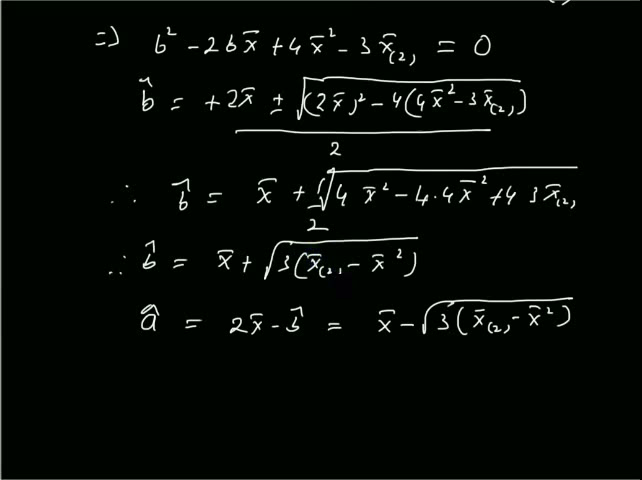 => b² - 2b x̄ + 4x̄² - 3x̄₍₂₎ = 0
b̂ = +2x̄ ± √((2x̄)² - 4(4x̄² - 3x̄₍₂₎)) / 2
∴ b̂ = x̄ + 1/2 √(4 x̄² - 4·4x̄² + 4 3x̄₍₂₎)
∴ b̂ = x̄ + √(3(x̄₍₂₎ - x̄²))
â = 2x̄ - b̂ = x̄ - √(3(x̄₍₂₎ - x̄²))